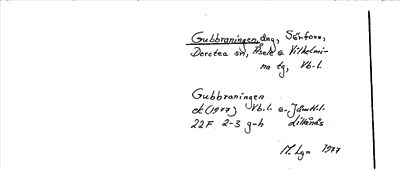 Gubbraningen, äng, Sörfors,
Dorotea sn, Åsele o. Vilhelmi-
na tg, Vb-l.
Gubbraningen
ek (1977) Vb.l. o. Jämtl.l.
22F 2-3 g-h
M. Lgn 1977